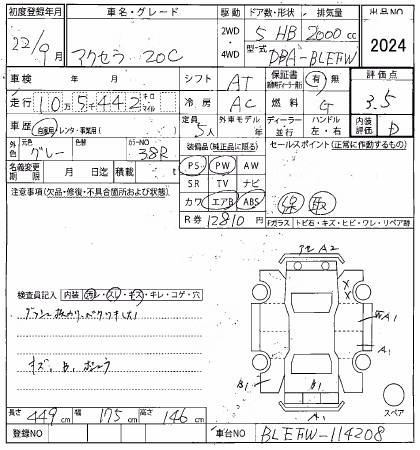 初度登録年月 車名・グレード 駆動 ドア数・形状 排気量 出品NO
22/9月 アクセラ 20C 2WD・4WD 5 HB 2000cc 2024
型式 DBA-BLEFW
車検 年 月 シフト AT 保証書 有 無 評価点
走行 10万5千442 キロ マイル 冷房 AC 燃料 G 3.5
車歴 自家用・レンタ・事業用( ) 定員 5人 外車モデル 年 ディーラー 並行 ハンドル 左・右 内装評価 D
外色 元色 グレー 色替 カラーNO 38R 装備品(純正品に限る) セールスポイント(正常に作動するもの)
名義変更期限 月 日迄 積載 t PS PW AW
SR TV ナビ
注意事項(欠品・修復・不具合箇所および状態) カワ エアB ABS 保 取
R券 12810円
Fガラス トビ石・キズ・ヒビ・ワレ・リペア跡
A2
検査員記入 内装 汚レ・スレ・キズ・キレ・コゲ・穴
X
X
A1
A1
キズ、
B1 B1
A1 スペア
長さ 449cm 幅 175cm 高さ 146cm
登録NO 車台NO BLEFW-114208